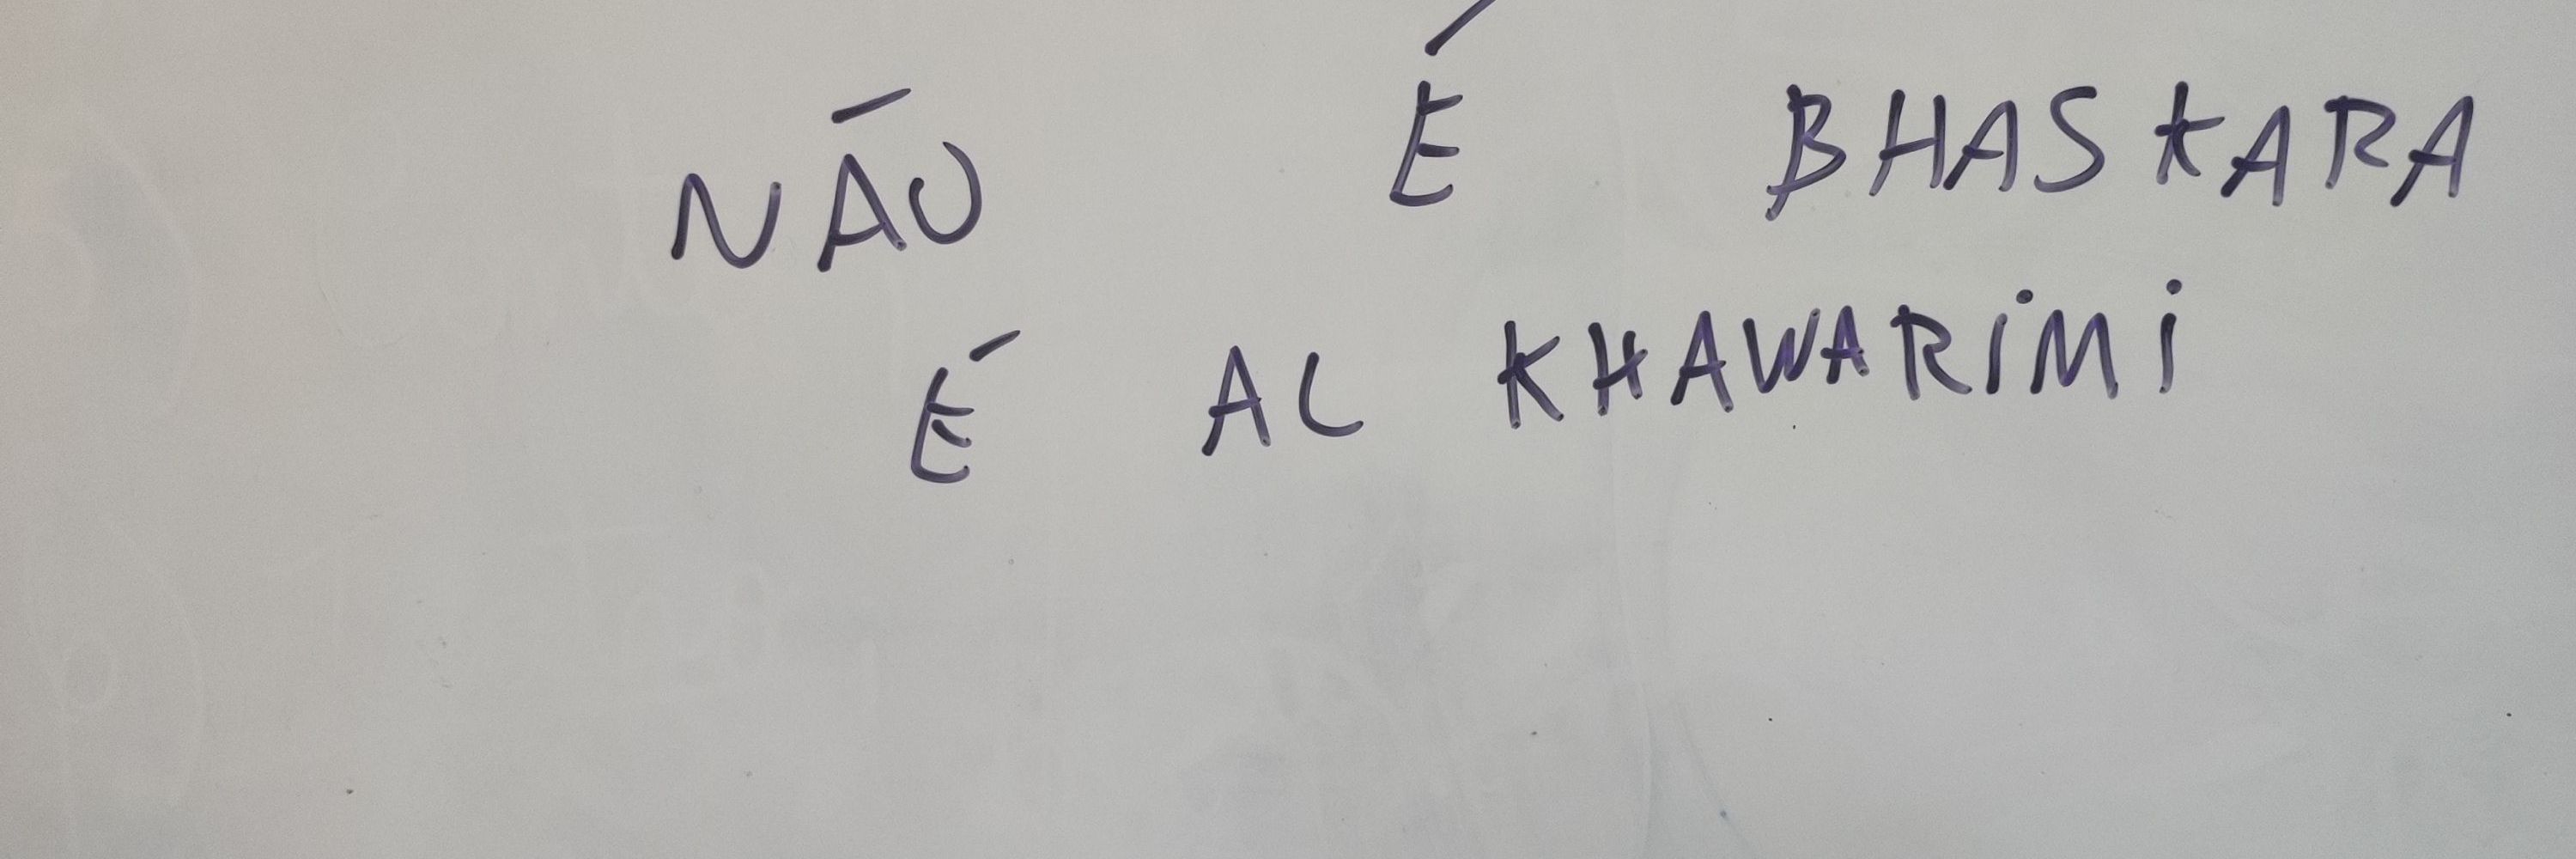 NÃO É BHASKARA
É AL KHAWARIMI